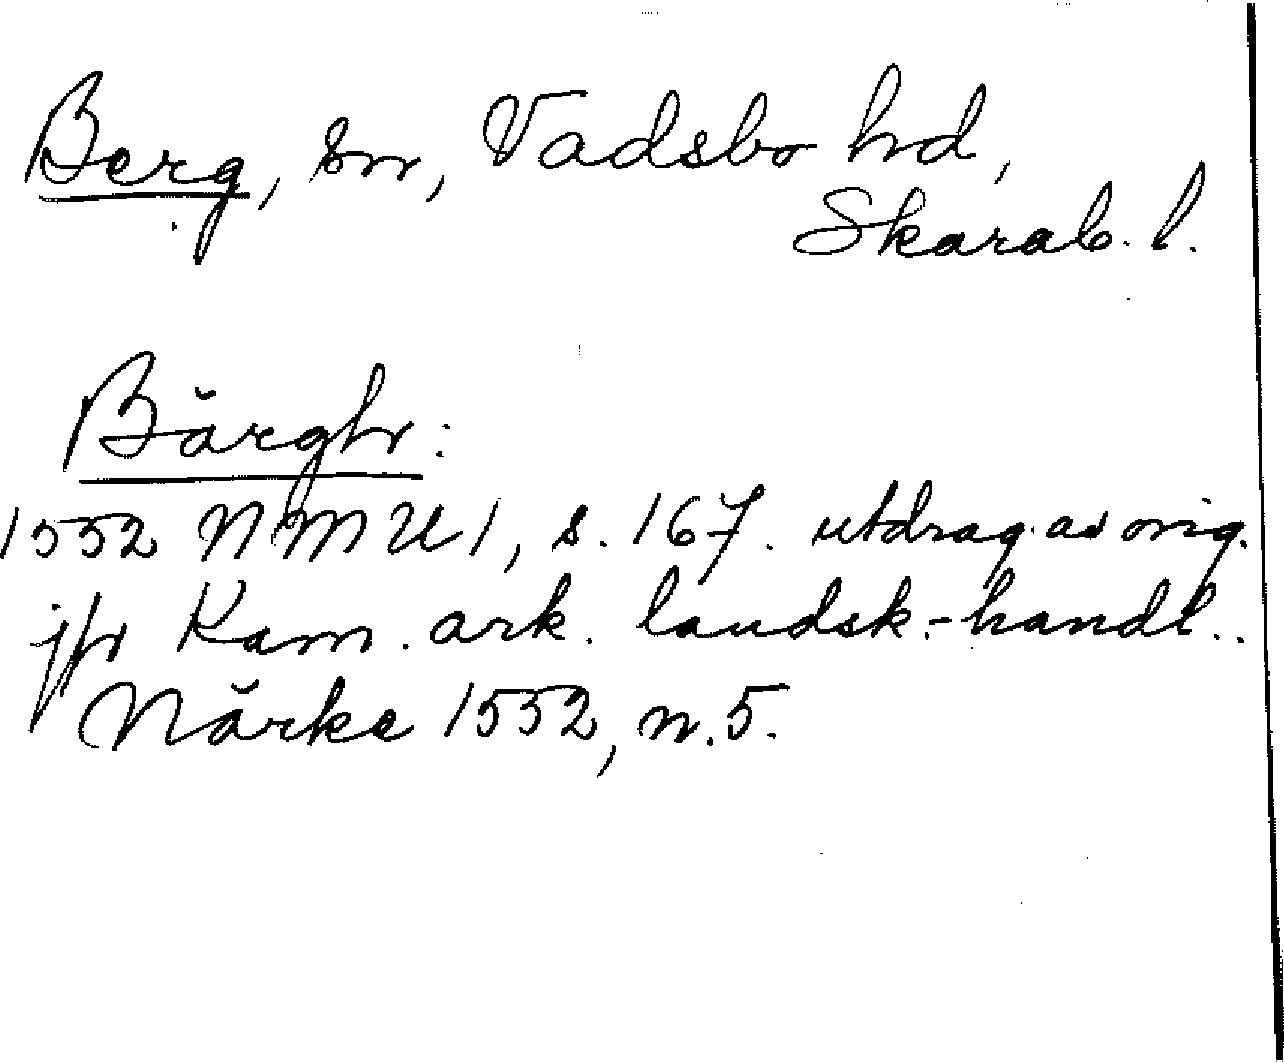 Berg, sn, Vadsbo hd,
Skarab. l.
Bärgh:
1552 NMU 1, s. 167. utdrag av orig.
jfr Kam. ark. landsk.-handl..
Närke 1552, n. 5.